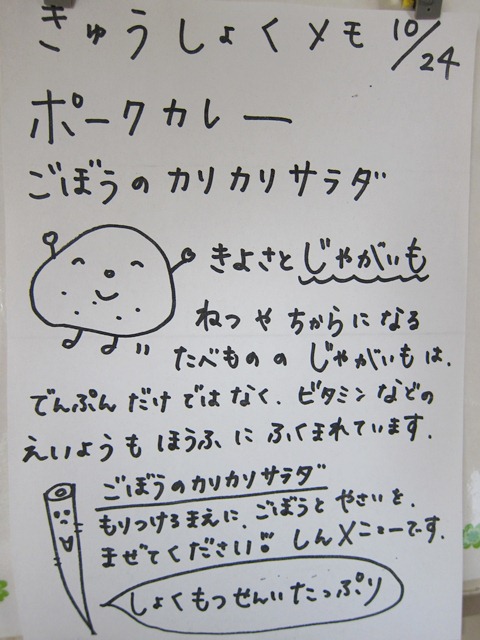 きゅうしょくメモ 10/24
ポークカレー
ごぼうのカリカリサラダ
きよさとじゃがいも
ねつやちからになる
たべもののじゃがいもは、
でんぷんだけではなく、ビタミンなどの
えいようもほうふにふくまれています。
ごぼうのカリカリサラダ
もりつけるまえに、ごぼうとやさいを、
まぜてください!! しんメニューです。
しょくもつせんいたっぷり